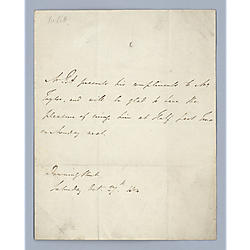 Mr Pitt presents his compliments to Mr
Taylor, and will be glad to have the
pleasure of seeing him at Half past two
on Monday next.
Downing Street
Saturday Oct. 27th